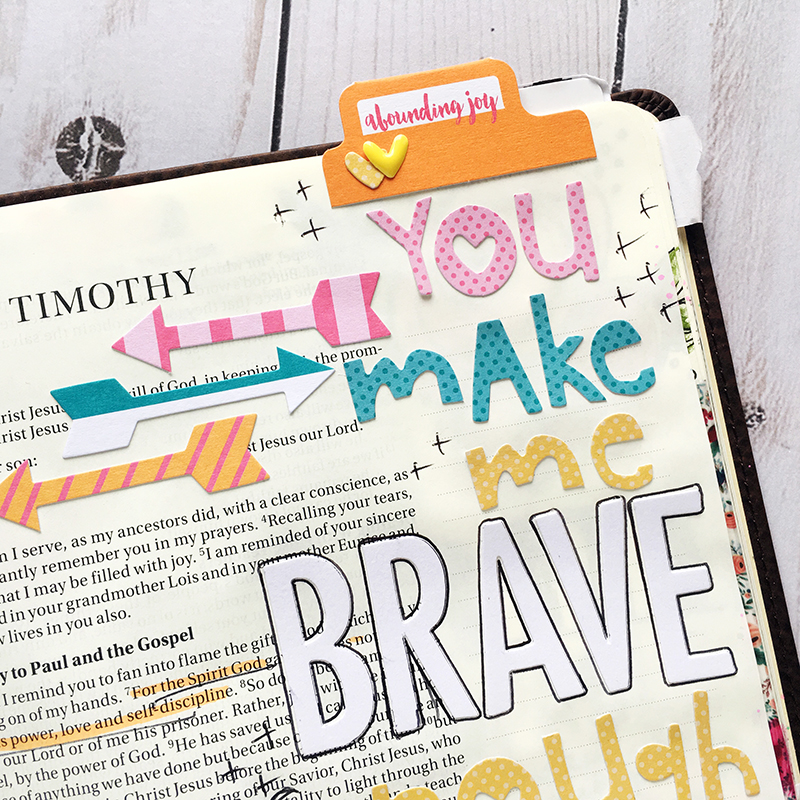 abounding joy
YOU
mAke
me
BRAVE
TIMOTHY
rill of God, in keeping the prom-
hrist Jesus
hrist Jesus st Jesus our Lord.
r son:
n I serve, as my ancestors did, with a clear conscience, as
antly remember you in my prayers. ⁴Recalling your tears,
hat I may be filled with joy. ⁵I am reminded of your sincere
d in your grandmother Lois and in your mother Eunice and
w lives in you also.
y to Paul and the Gospel
I remind you to fan into flame the gift
g on of my hands. ⁷For the Spirit God
s power, love and self-discipline. ⁸So do
our Lord or of me his prisoner. Rather,
el, by the power of God. ⁹He has saved us
e of anything we have done but because
hrist Jesus before the beginning of
of our Savior, Christ Jesus, who
to light through the
teach